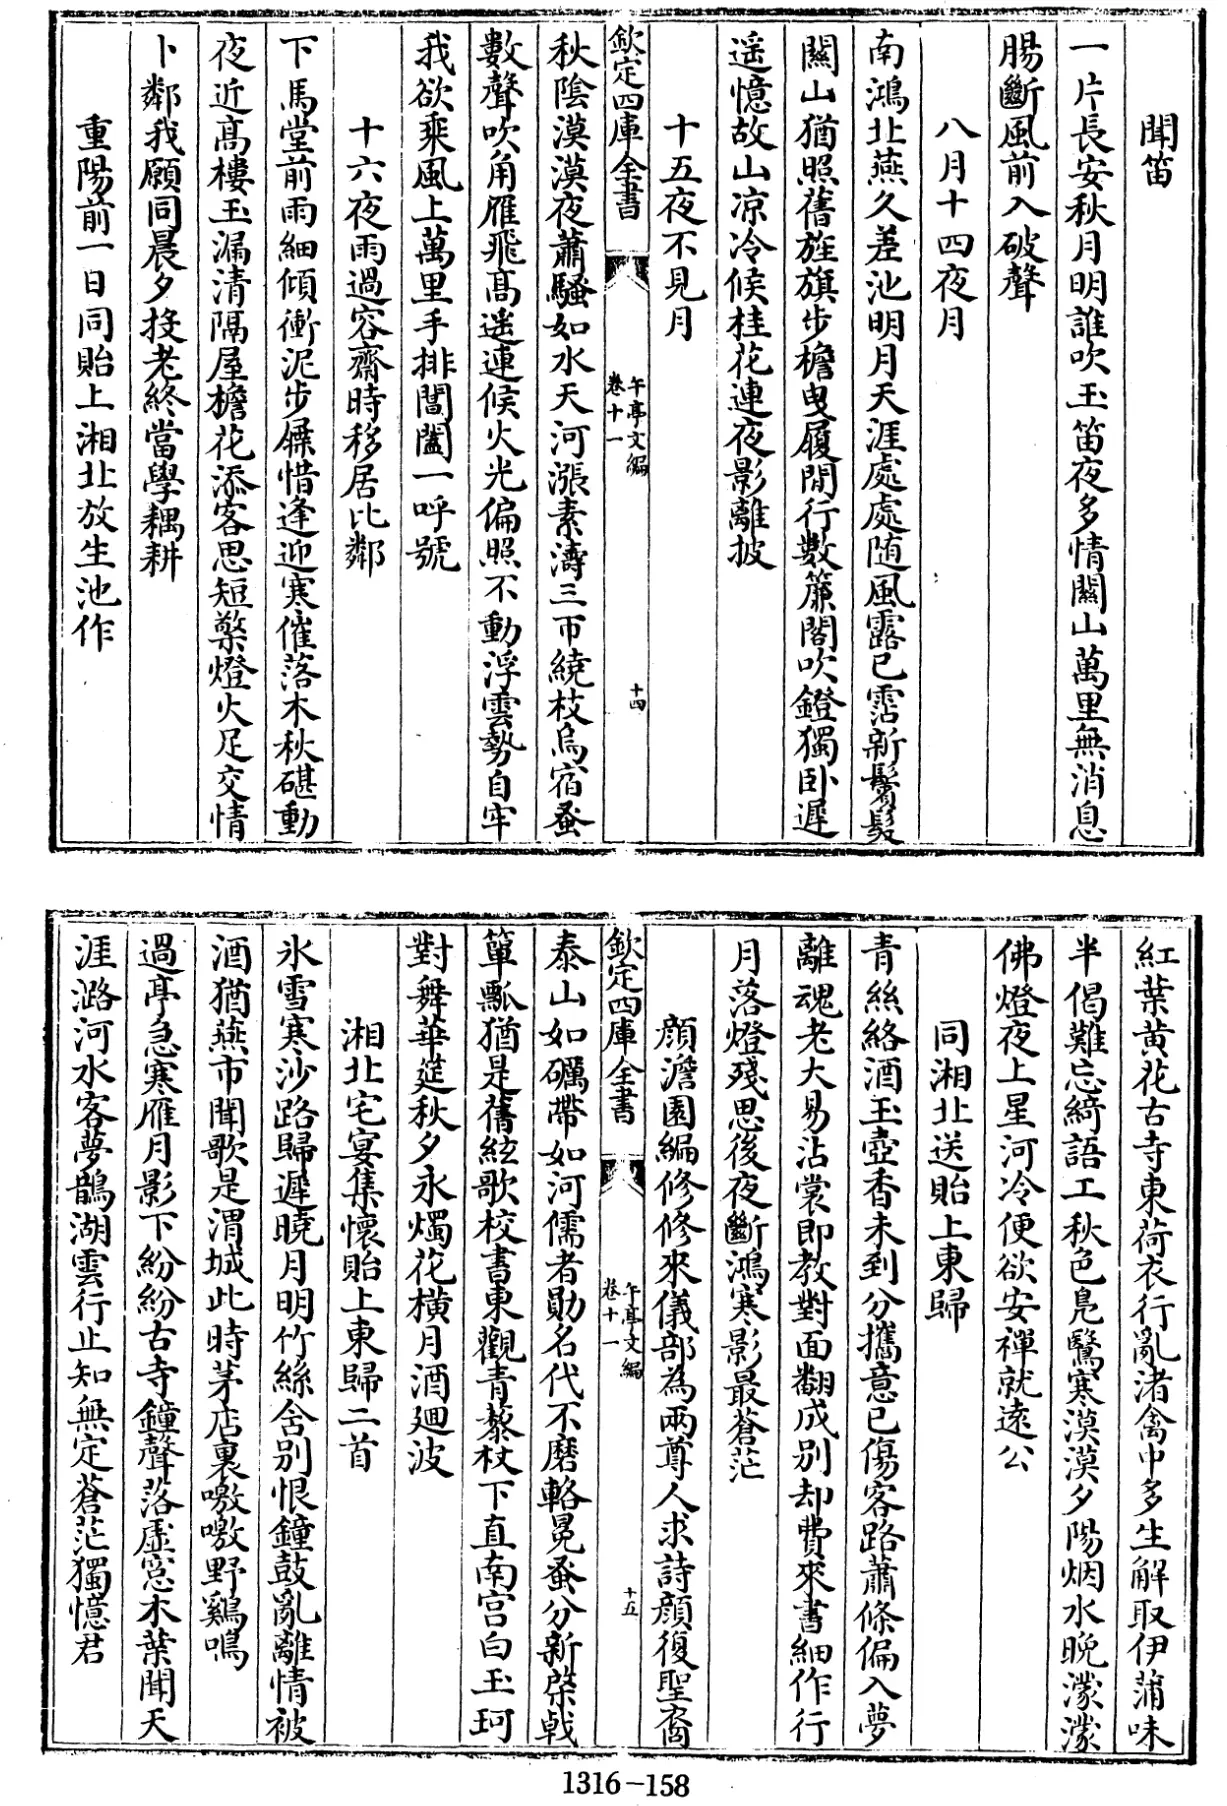 聞笛
一片長安秋月明誰吹玉笛夜多情關山萬里無消息
腸斷風前入破聲
八月十四夜月
南鴻北燕久差池明月天涯處處隨風露已霑新鬢髮
關山猶照舊旌旗步檐曳履閒行數簾閣吹鐙獨卧遲
遥憶故山凉冷候桂花連夜影離披
十五夜不見月
欽定四庫全書
午亭文編
卷十一
十四
秋陰漠漠夜蕭騷如水天河漲素濤三帀繞枝烏宿蚤
數聲吹角雁飛髙遥連候火光偏照不動浮雲勢自牢
我欲乘風上萬里手排閶闔一呼號
十六夜雨過容齋時移居比鄰
下馬堂前雨細傾衝泥步屧惜逢迎寒催落木秋碪動
夜近髙樓玉漏清隔屋檐花添客思短檠燈火足交情
卜鄰我願同晨夕投老終當學耦耕
重陽前一日同貽上湘北放生池作
紅葉黄花古寺東荷衣行亂渚禽中多生解取伊蒲味
半偈難忘綺語工秋色鳬鷖寒漠漠夕陽烟水晩濛濛
佛燈夜上星河冷便欲安禪就遠公
同湘北送貽上東歸
青絲絡酒玉壺香未到分攜意已傷客路蕭條偏入夢
離魂老大易沾裳即教對面翻成別却費來書細作行
月落燈殘思後夜斷鴻寒影最蒼茫
顔澹園編修修來儀部為兩尊人求詩顔復聖裔
欽定四庫全書
午亭文編
卷十一
十五
泰山如礪帶如河儒者勛名代不磨輅冕蚤分新棨戟
簞瓢猶是舊絃歌校書東觀青藜杖下直南宫白玉珂
對舞華筵秋夕永燭花横月酒廻波
湘北宅宴集懷貽上東歸二首
氷雪寒沙路歸遲曉月明竹絲含别恨鐘鼓亂離情被
酒猶燕市聞歌是渭城此時茅店裏嗷嗷野鷄鳴
過亭急寒雁月影下紛紛古寺鐘聲落虛窓木葉聞天
涯潞河水客夢鵲湖雲行止知無定蒼茫獨憶君
1316-158